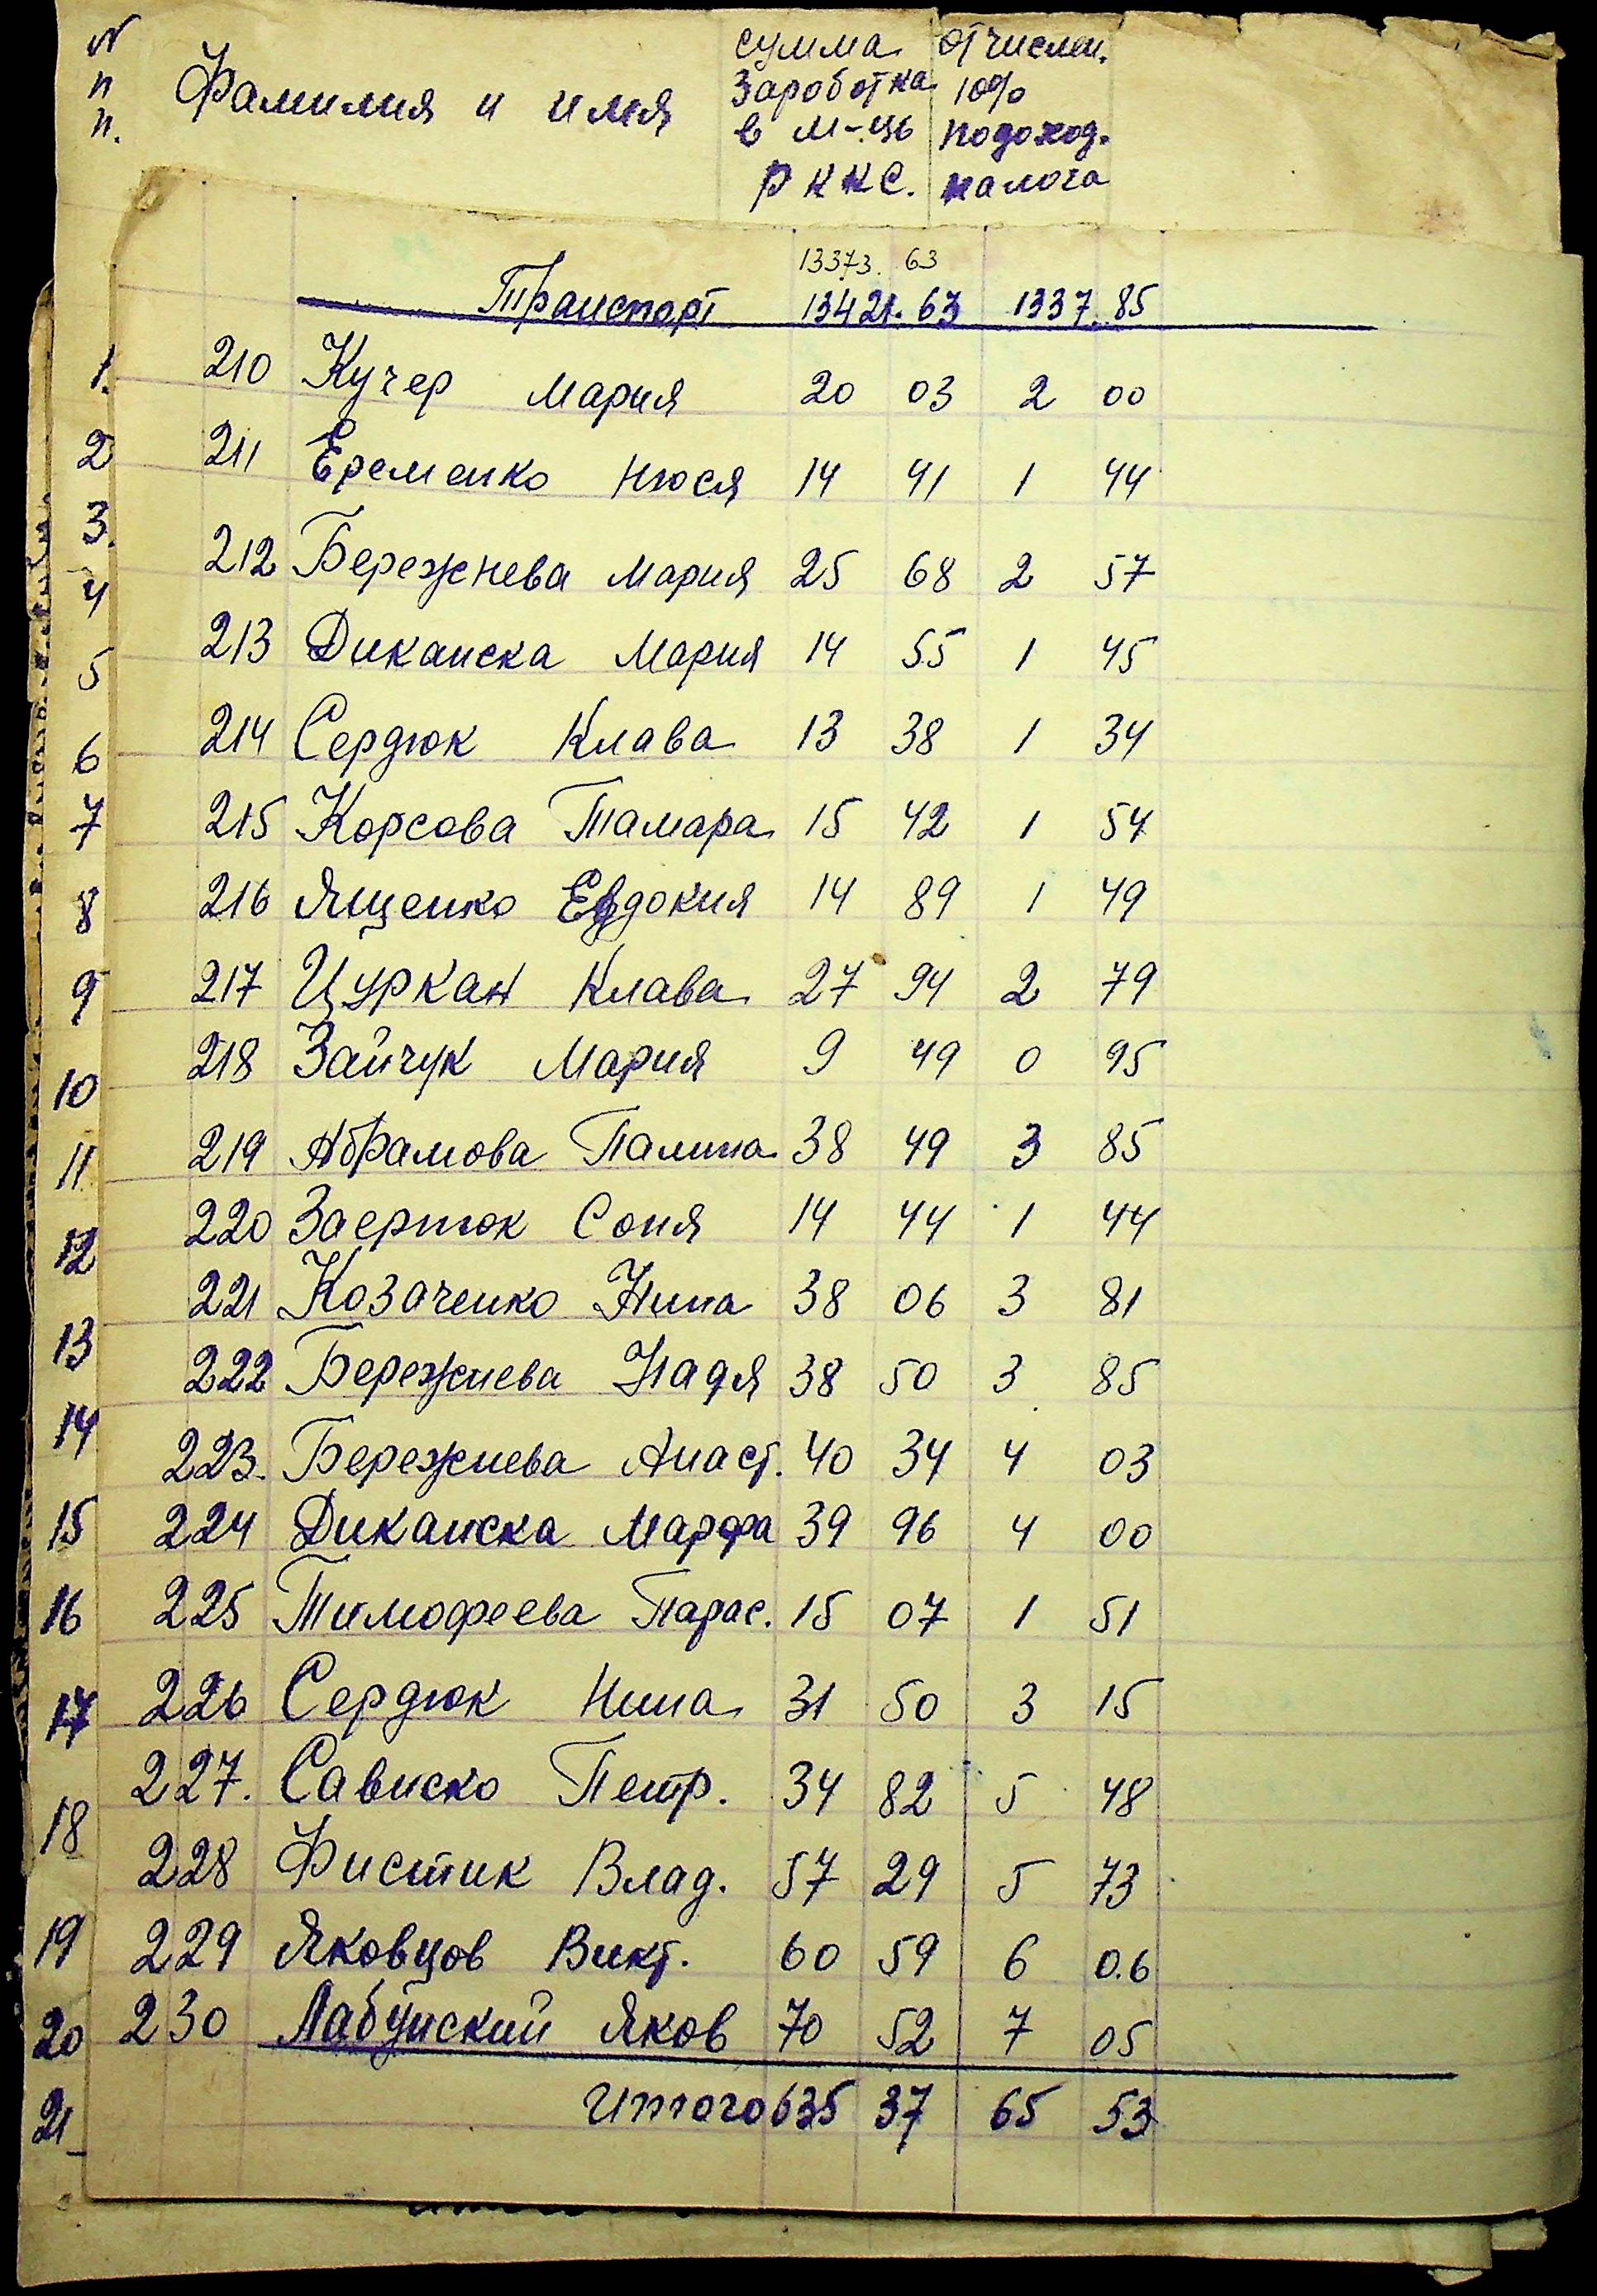 № п п. Фамилия и имя сумма заработка в м-ць РККС. отчислен. 10% подоход. налога
13373. 63
Транспорт 13421. 63 1337. 85
1. 210 Кучер Мария 20 03 2 00
2 211 Еременко Нюся 14 41 1 44
3. 212 Бережнева Мария 25 68 2 57
4 213 Диканска Мария 14 55 1 45
5 214 Сердюк Клава 13 38 1 34
6 215 Корсова Тамара 15 42 1 54
7 216 Ященко Евдокия 14 89 1 49
8 217 Цуркан Клава 27 94 2 79
9 218 Зайчук Мария 9 49 0 95
10 219 Абрамова Палина 38 49 3 85
11 220 Заертюк Соня 14 44 1 44
12 221 Козаченко Нина 38 06 3 81
13 222 Бережнева Надя 38 50 3 85
14 223. Бережнева Анаст. 40 34 4 03
15 224 Диканска Марфа 39 96 4 00
16 225 Тимофеева Парас. 15 07 1 51
17 226 Сердюк Нина 31 50 3 15
18 227. Сависко Петр. 34 82 5 48
228 Фистик Влад. 57 29 5 73
19 229 Яковцов Викт. 60 59 6 0.6
20 230 Лабунский Яков 70 52 7 05
21 Итого 635 37 65 53